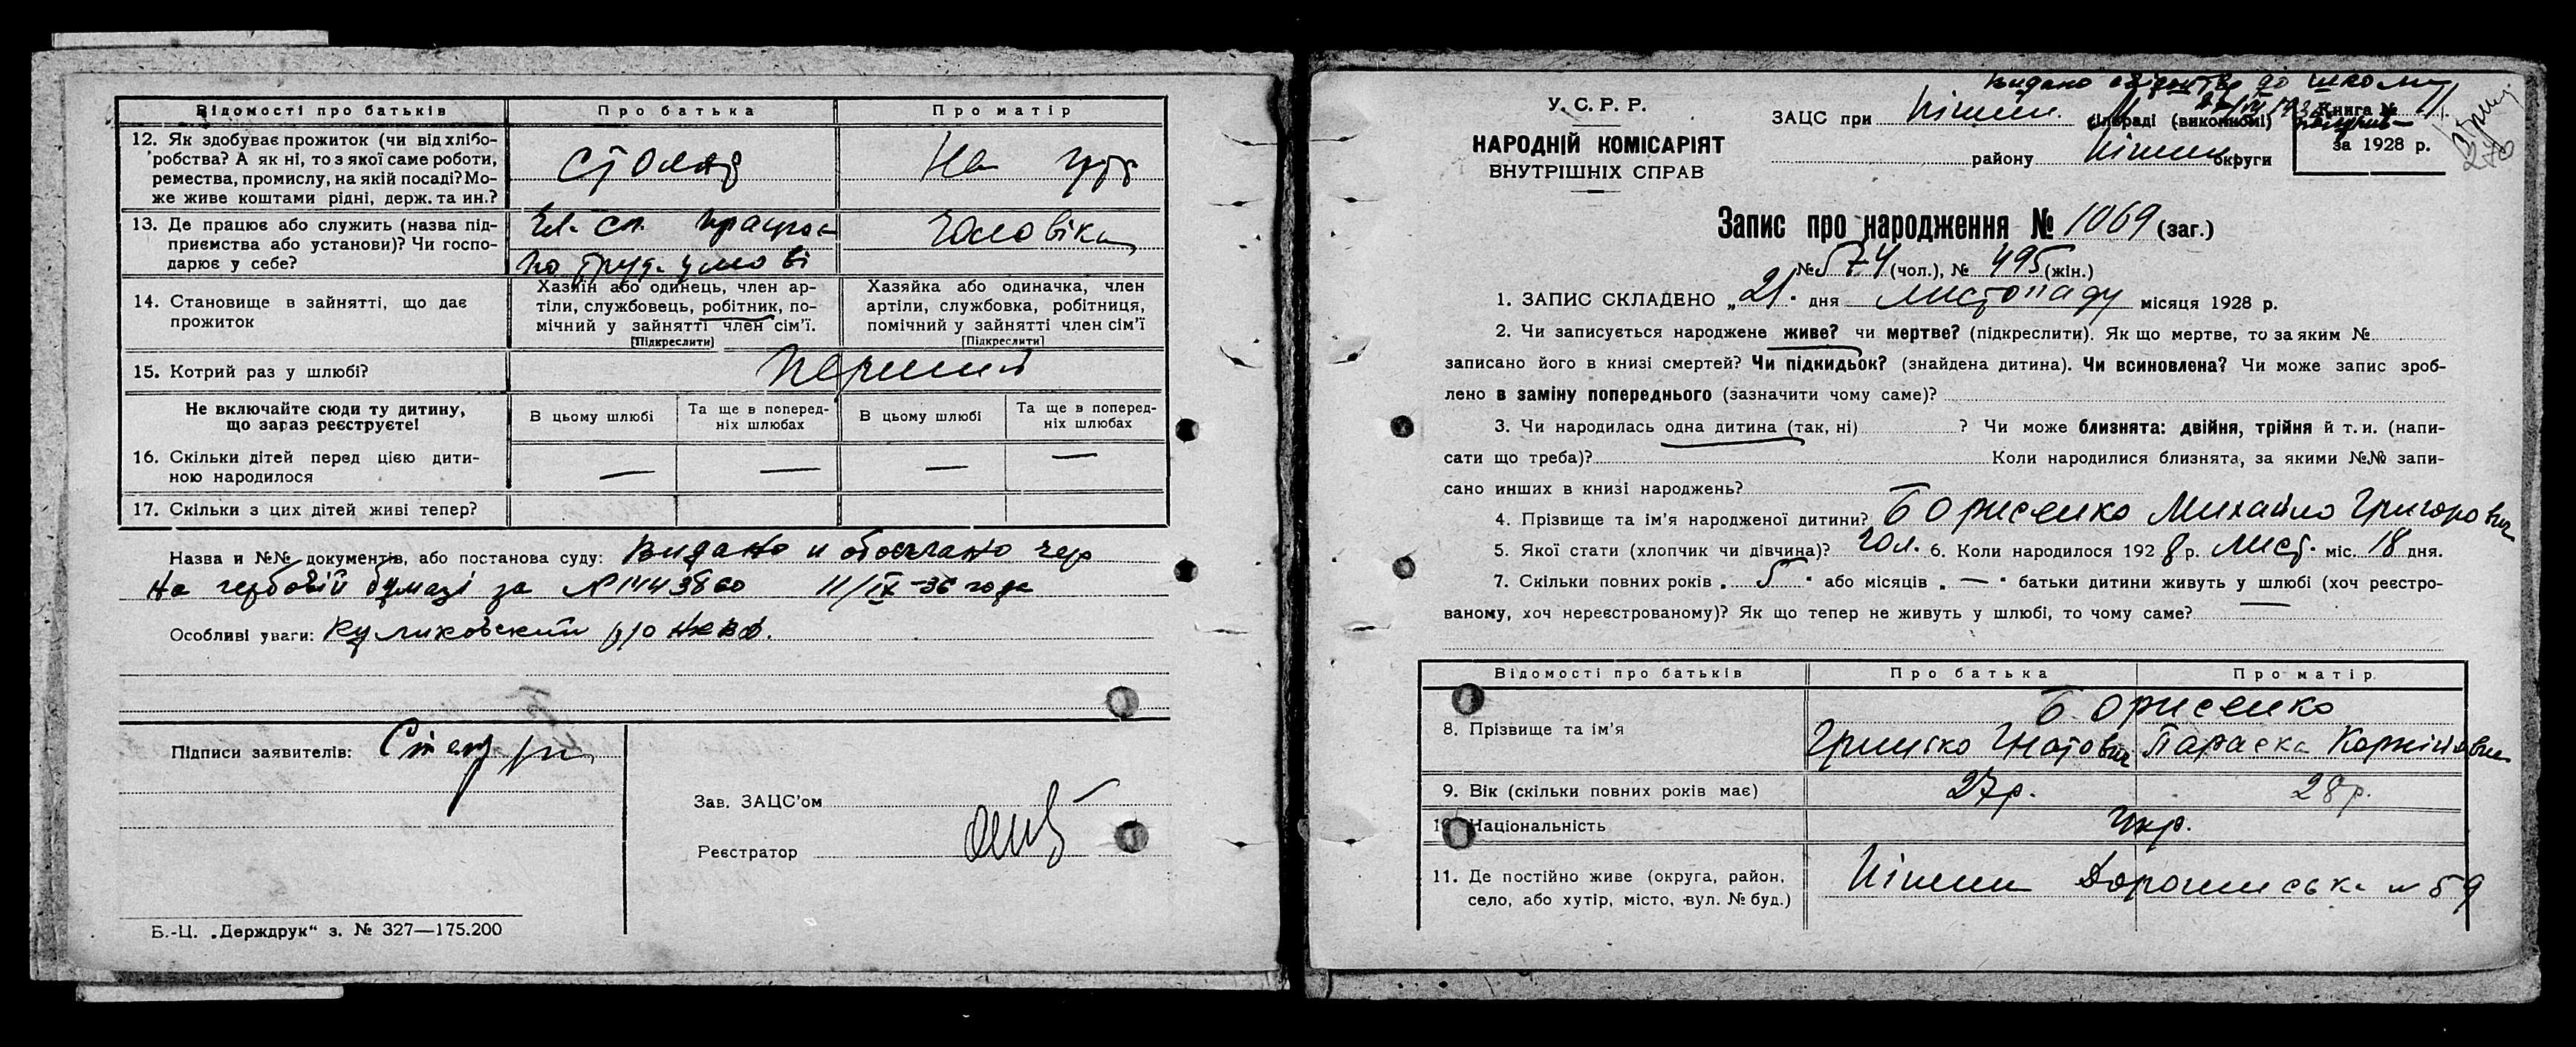 Відомості про батьків Про батька Про матір
12. Як здобуває прожиток (чи від хлібо-
робства? А як ні, то з якої саме роботи,
ремества, промислу, на якій посаді? Мо-
же живе коштами рідні, держ. та ин.?
столяр
На утр
13. Де працює або служить (назва під-
приємства або установи)? Чи госпо-
дарює у себе?
Чл. сп. працює
по труд. умові
Чоловіка
14. Становище в зайнятті, що дає
прожиток
Хазяїн або одинець, член ар-
тіли, службовець, робітник, по-
мічний у зайнятті член сім'ї.
[Підкреслити]
Хазяйка або одиначка, член
артіли, службовка, робітниця,
помічний у зайнятті член сім'ї
[Підкреслити]
15. Котрий раз у шлюбі? перший
Не включайте сюди ту дитину,
що зараз реєструєте!
В цьому шлюбі
Та ще в поперед-
ніх шлюбах
В цьому шлюбі
Та ще в поперед-
ніх шлюбах
16. Скільки дітей перед цією дити-
ною народилося
— — — —
17. Скільки з цих дітей живі тепер?
Назва и №№ документів, або постанова суду: Видано и
На гербовій бумазі за № 1443860 11/IX-36 года
Особливі уваги: Куликовский р/о НКВД.
Підписи заявителів:
Зав. ЗАЦС'ом
Реєстратор
Б.-Ц. „Держдрук“ з. № 327—175.200
Видано свідоцтво до школи
У. С. Р. Р.
НАРОДНІЙ КОМІСАРІЯТ
ВНУТРІШНІХ СПРАВ
ЗАЦС при Ніжин. сільраді (виконкомі)
району Ніжин. округи
Книга №
за 1928 р.
Запис про народження № 1069 (заг.)
№ 574 (чол.), № 495 (жін.)
1. ЗАПИС СКЛАДЕНО „21" дня листопаду місяця 1928 р.
2. Чи записується народжене живе? чи мертве? (підкреслити). Як що мертве, то за яким №
записано його в книзі смертей? Чи підкидьок? (знайдена дитина). Чи всиновлена? Чи може запис зроб-
лено в заміну попереднього (зазначити чому саме)?
3. Чи народилась одна дитина (так, ні) ? Чи може близнята: двійня, трійня й т. и. (напи-
сати що треба)? Коли народилися близнята, за якими №№ запи-
сано инших в книзі народжень?
4. Прізвище та ім'я народженої дитини? Борисенко Михайло Григорович
5. Якої стати (хлопчик чи дівчина)? чол. 6. Коли народилося 1928 р. лист. міс. 18 дня.
7. Скільки повних років „ 5 " або місяців „ — " батьки дитини живуть у шлюбі (хоч реєстро-
ваному, хоч нереєстрованому)? Як що тепер не живуть у шлюбі, то чому саме? —
Відомості про батьків Про батька Про матір
8. Прізвище та ім'я
Борисенко
Грицько Гнатович Параска Корніївна
9. Вік (скільки повних років має) 27р. 28р.
10. Національність Укр.
11. Де постійно живе (округа, район,
село, або хутір, місто, вул. № буд.)
Ніжин № 59